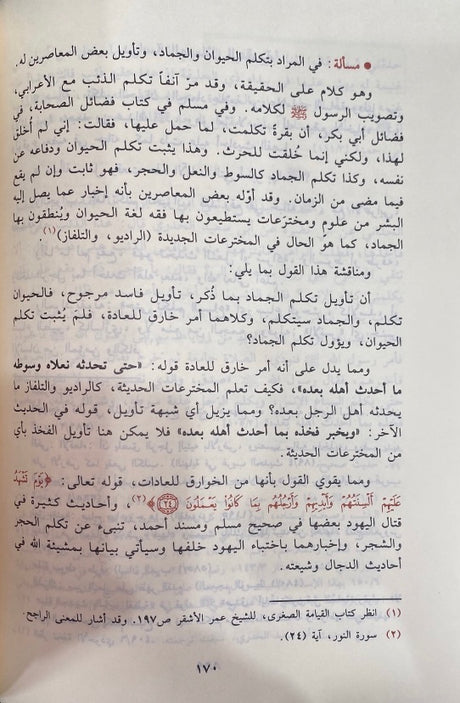 ● مسألة: في المراد بتكلم الحيوان والجماد، وتأويل بعض المعاصرين له.
وهو كلام على الحقيقة، وقد مرّ آنفاً تكلم الذئب مع الأعرابي،
وتصويب الرسول ﷺ لكلامه. وفي مسلم في كتاب فضائل الصحابة، في
فضائل أبي بكر، أن بقرةً تكلمت، لما حمل عليها، فقالت: إني لم أُخلق
لهذا، ولكني إنما خُلقت للحرث. وهذا يثبت تكلم الحيوان ودفاعه عن
نفسه، وكذا تكلم الجماد كالسوط والنعل والحجر، فهو ثابت وإن لم يقع
فيما مضى من الزمان. وقد أوّله بعض المعاصرين بأنه إخبار عما يصل إليه
البشر من علومٍ ومخترعات يستطيعون بها فقه لغة الحيوان ويُنطقون بها
الجماد، كما هو الحال في المخترعات الجديدة (الراديو، والتلفاز)(١).
ومناقشة هذا القول بما يلي:
أن تأويل تكلم الجماد بما ذُكر، تأويل فاسد مرجوح، فالحيوان
تكلم، والجماد سيتكلم، وكلاهما أمر خارق للعادة، فلمَ يُثبت تكلم
الحيوان، ويؤول تكلم الجماد؟
ومما يدل على أنه أمر خارق للعادة قوله: «حتى تحدثه نعلاه وسوطه
ما أحدث أهله بعده»، فكيف تعلم المخترعات الحديثة، كالراديو والتلفاز ما
يحدثه أهل الرجل بعده؟ ومما يزيل أي شبهة تأويل، قوله في الحديث
الآخر: «ويخبر فخذه بما أحدث أهله بعده» فلا يمكن هنا تأويل الفخذ بأي
من المخترعات الحديثة.
ومما يقوي القول بأنها من الخوارق للعادات، قوله تعالى: ﴿يَوْمَ تَشْهَدُ
عَلَيْهِمْ أَلْسِنَتُهُمْ وَأَيْدِيهِمْ وَأَرْجُلُهُم بِمَا كَانُوا يَعْمَلُونَ ٢٤﴾(٢)، وأحاديث كثيرة في
قتال اليهود بعضها في صحيح مسلم ومسند أحمد، تنبىء عن تكلم الحجر
والشجر، وإخبارهما باختباء اليهود خلفها وسيأتي بيانها بمشيئة الله في
أحاديث الدجال وشيعته.
(١) انظر كتاب القيامة الصغرى، للشيخ عمر الأشقر ص١٩٧. وقد أشار للمعنى الراجح.
(٢) سورة النور، آية (٢٤).
١٧٠